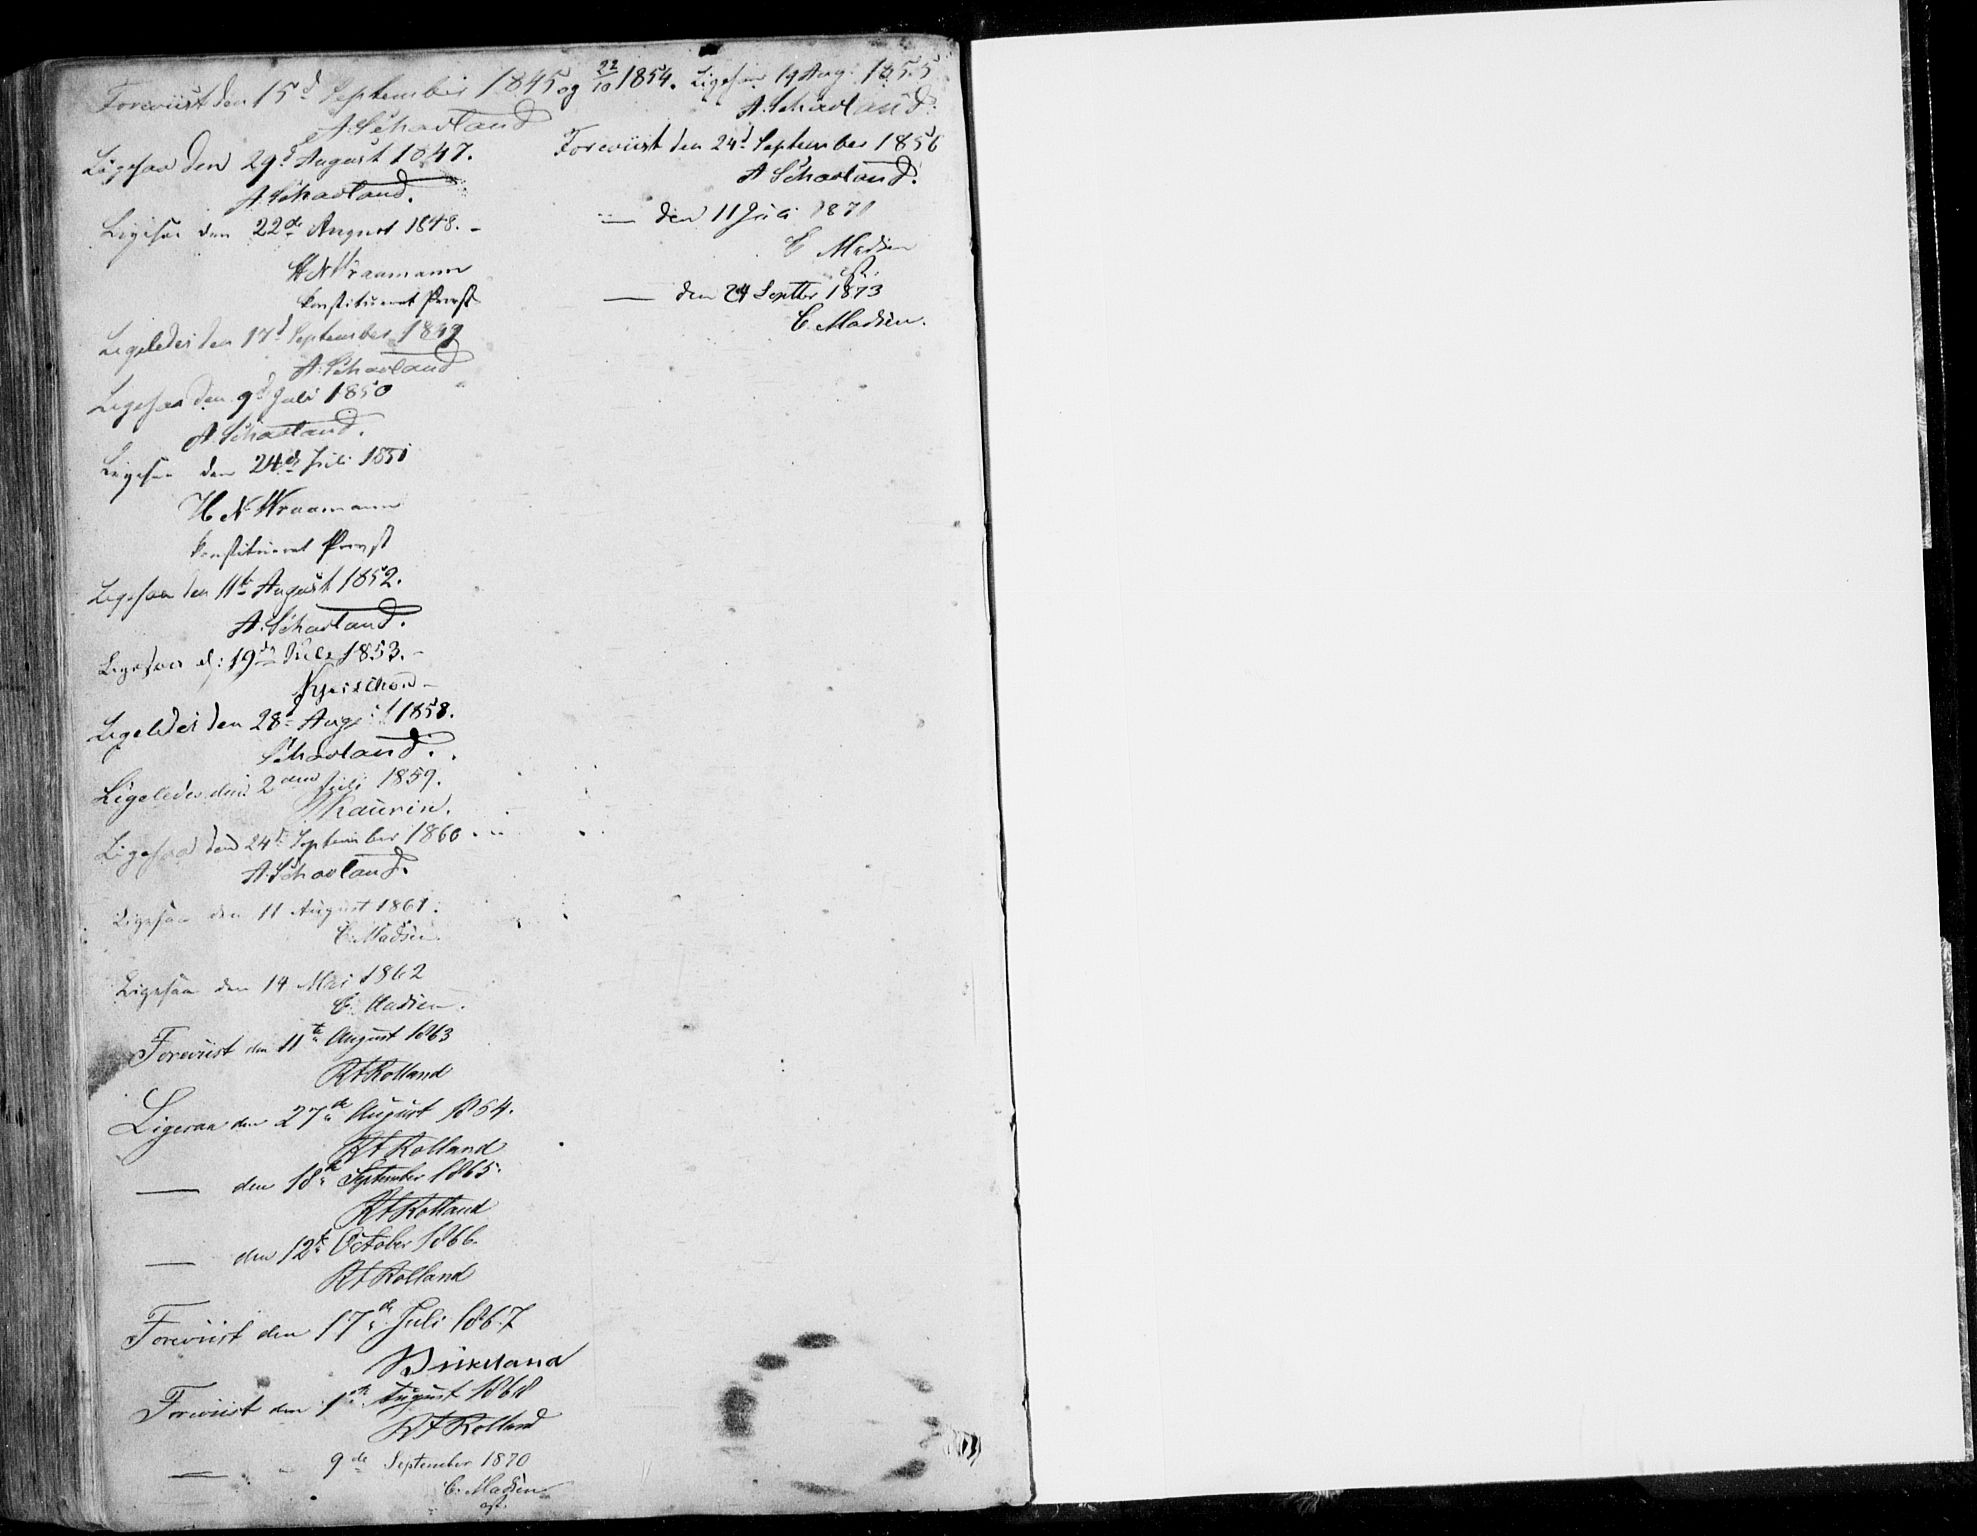 Foreviist den 15d September 1845 og 22/10 1854. Ligesaa 19 Aug. 1855
A. Schavland
A. Schavland.
Ligesaa den 29d August 1847.
A. Schavland.
Ligesaa den 22de August 1848. -
H N Wraamann
konstitueret Provst
Ligeledes den 17d September 1849
A. Schavland
Ligesaa den 9d Juli 1850
A. Schavland.
Ligesaa den 24de Juli 1851
H N Wraamann
konstitueret Provst
Ligesaa den 11te August 1852.
A. Schavland.
Ligesaa d: 19de Juli 1853. -
Ligeledes den 28d Aug. 1858.
Schavland.
Ligeledes den 2den Juli 1859.
Kaurin.
Ligesaa den 24d September 1860.
A. Schavland.
Ligesaa den 11 August 1861.
C. Madsen.
Ligesaa den 14 Mai 1862
C. Madsen.
Foreviist den 11te August 1863
R A Rolland
Ligesaa den 27de August 1864.
R A Rolland
— den 18de September 1865.
R A Rolland
— den 12te October 1866.
R A Rolland
Foreviist den 17de Juli 1867
Birkeland
Foreviist den 1ste August 1868
R A Rolland
— - 9de September 1870
C. Madsen
cst.
Foreviist den 24d September 1856
A Schavland.
— den 11 Juli 1871
C Madsen
cst.
— den 24 Septbr 1873
C. Madsen.